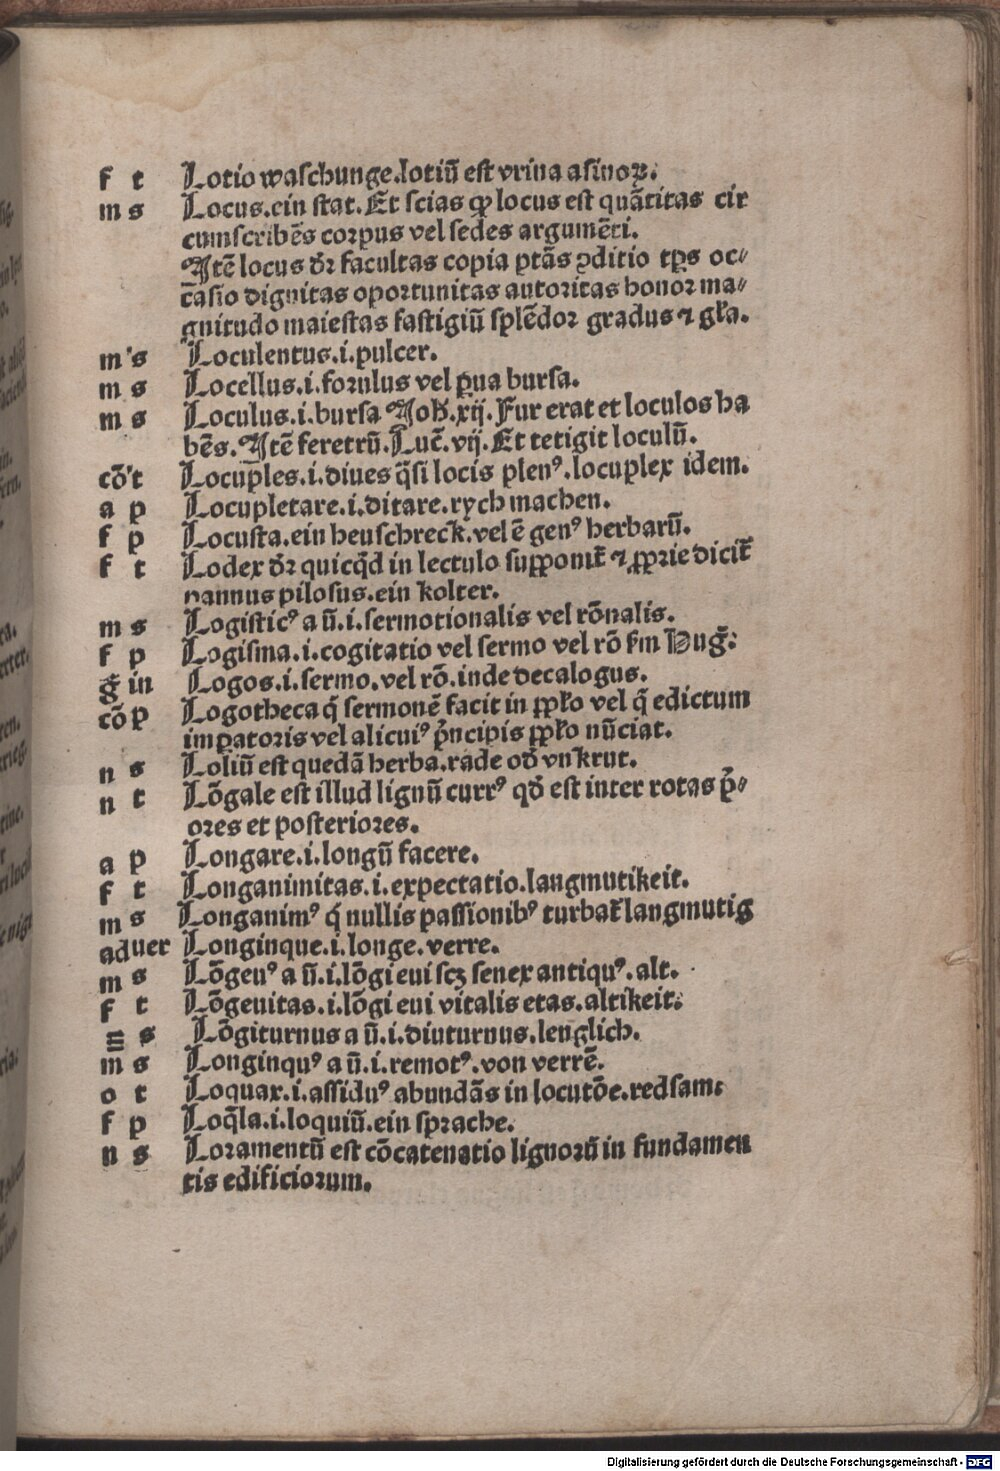 f t Lotio waschunge.lotiū est vrina asinoꝝ.
m s Locus.ein stat.Et scias ꝙ locus est quātitas cir
cumscribēs corpus vel sedes argumēti.
Itē locus dr̄ facultas copia ptās ꝯditio tp̄s oc⸗
casio dignitas oportunitas autoritas honor ma⸗
gnitudo maiestas fastigiū splēdor gradus ⁊ gła.
m s Loculentus.i.pulcer.
m s Locellus.i.forulus vel ꝑua bursa.
m s Loculus.i.bursa Joh̄.xij.Fur erat et loculos ha
bēs.Itē feretrū.Luc̄.vij.Et tetigit loculū.
cō t Locuples.i.diues q̄si locis plenꝰ.locuplex idem.
a p Locupletare.i.ditare.rych machen.
f p Locusta.ein heuschreck.vel ē genꝰ herbarū.
f t Lodex dr̄ quicqd̄ in lectulo supponit̄ ⁊ ꝓprie dicit̄
pannus pilosus.ein kolter.
m s Logisticꝰ a ū.i.sermotionalis vel rōnalis.
f p Logisma.i.cogitatio vel sermo vel rō fm Huḡ.
ḡ in Logos.i.sermo.vel rō.inde decalogus.
cō p Logotheca q̇ sermonē facit in ppło vel q̇ edictum
imꝑatoris vel alicuiꝰ ṗncipis ppło nūciat.
n s Loliū est quedā herba.rade od̄ vnkrut.
n t Lōgale est illud lignū currꝰ qd̄ est inter rotas ṗ⸗
ores et posteriores.
a p Longare.i.longū facere.
f t Longanimitas.i.expectatio.langmutikeit.
m s Longanimꝰ q̇ nullis passionibꝰ turbat̄ langmutig
aduer Longinque.i.longe.verre.
m s Lōgeuꝰ a ū.i.lōgi eui scꝫ senex antiquꝰ.alt.
f t Lōgeuitas.i.lōgi eui vitalis etas.altikeit.
m s Lōgiturnus a ū.i.diuturnus.lenglich.
m s Longinquꝰ a ū.i.remotꝰ.von verrē.
o t Loquax.i.assiduꝰ abundās in locutōe.redsam.
f p Loq̄la.i.loquiū.ein sprache.
n s Loramentū est cōcatenatio lignorū in fundamen
tis edificiorum.
Digitalisierung gefördert durch die Deutsche Forschungsgemeinschaft - DFG